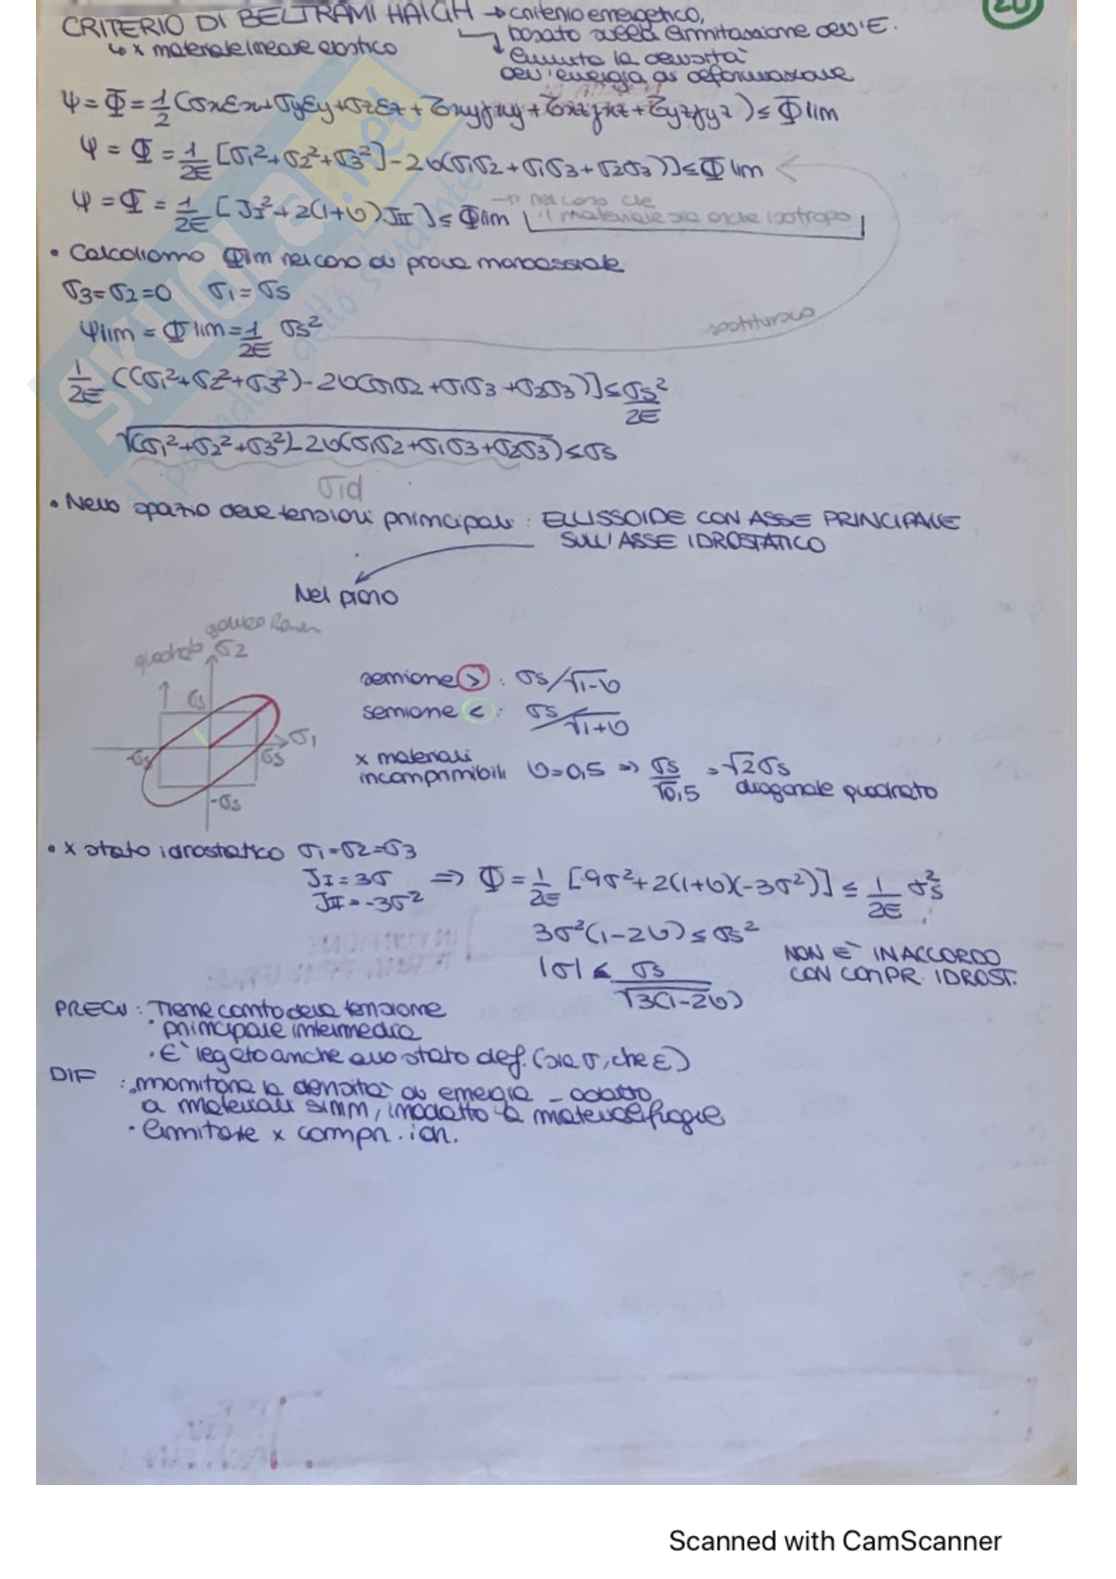 20
CRITERIO DI BELTRAMI HAIGH → criterio energetico,
↳ x materiale lineare elastico
basato sulla limitazione dell'E.
limita la densità
dell'energia di deformazione
ψ = Φ = 1/2 (σxεx + σyεy + σzεz + τxyγxy + τxzγxz + τyzγyz) ≤ Φlim
ψ = Φ = 1/2E [σ1² + σ2² + σ3²] - 2υ(σ1σ2 + σ1σ3 + σ2σ3)] ≤ Φlim
ψ = Φ = 1/2E [JI² + 2(1+υ)JII] ≤ Φlim
→ nel caso che
il materiale sia anche isotropo
• Calcoliamo Φlim nel caso di prova monoassiale
σ3 = σ2 = 0 σ1 = σs
ψlim = Φlim = 1/2E σs²
sostituisco
1/2E ((σ1² + σ2² + σ3²) - 2υ(σ1σ2 + σ1σ3 + σ2σ3)] ≤ σs²/2E
√(σ1² + σ2² + σ3²) - 2υ(σ1σ2 + σ1σ3 + σ2σ3) ≤ σs
σid
• Nello spazio delle tensioni principali : ELLISSOIDE CON ASSE PRINCIPALE
SULL'ASSE IDROSTATICO
Nel piano
quadrato
σ2
σs
-σs
σs
σ1
-σs
semiasse > : σs/√1-υ
semiasse < : σs/√1+υ
x materiali
incomprimibili υ=0,5 => σs/√0,5 = √2σs
diagonale quadrato
• x stato idrostatico σ1=σ2=σ3
JI = 3σ
JII = -3σ²
=> Φ = 1/2E [9σ² + 2(1+υ)(-3σ²)] ≤ 1/2E σs²
3σ²(1-2υ) ≤ σs²
|σ| ≤ σs/√3(1-2υ)
NON E' IN ACCORDO
CON COMPR. IDROST.
PREGI : Tiene conto della tensione
principale intermedia
• E' legato anche allo stato def. (sia σ, che ε)
DIF : • monitora la densità di energia - adatto
a materiali simm, inadatto a materiali fragili
• limitate x compr. idr.
Scanned with CamScanner
SKUOLA.net
il portale dello studente